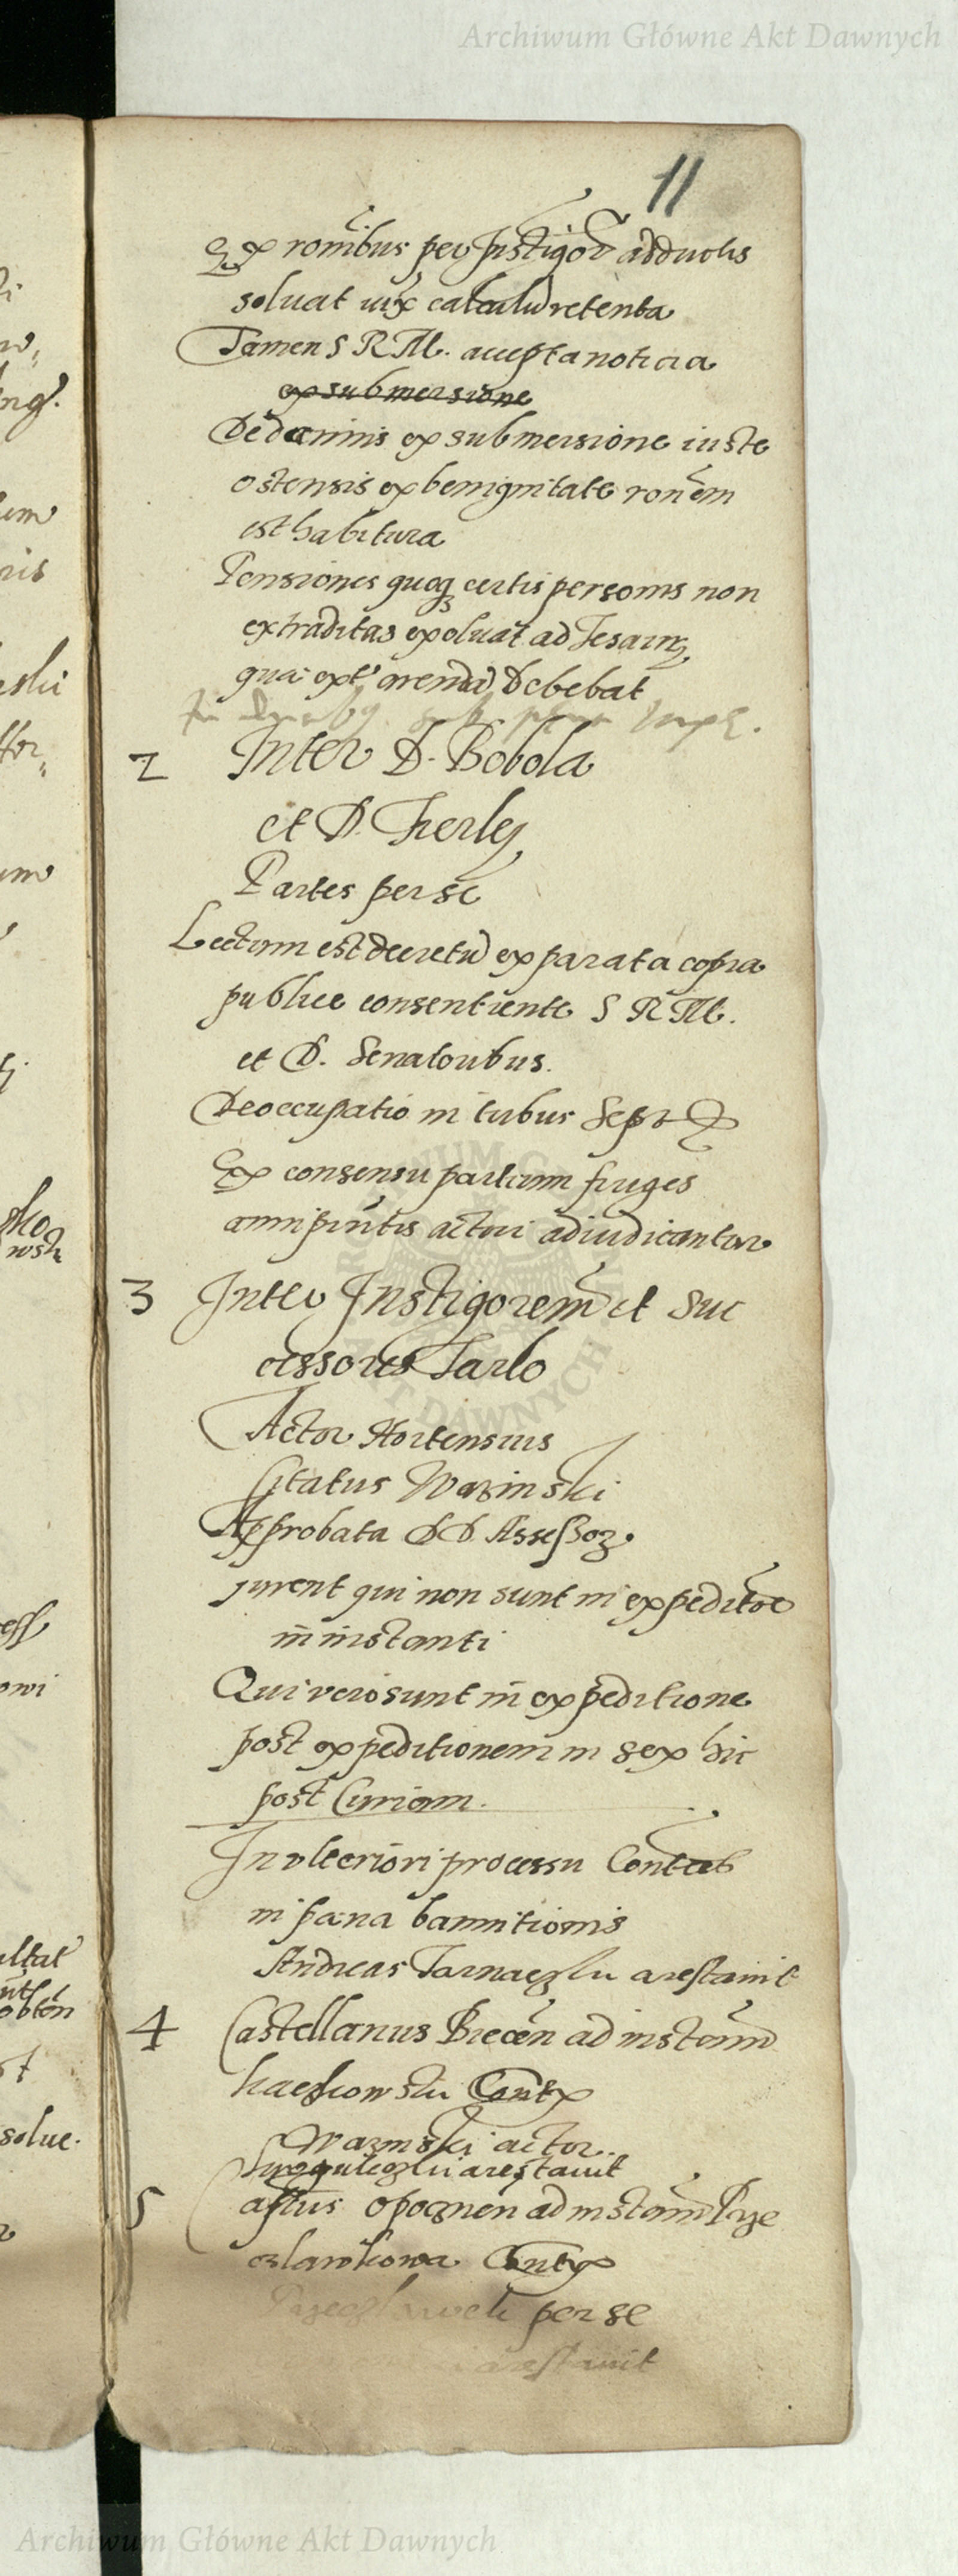 Archiwum Główne Akt Dawnych
11
Ex ronibus per Instigor adductis
soluat iux calculu retenta
Tamen S R M. accepta noticia
ex submersione
De damnis ex submersione iuste
ostensis ex benignitate ronem
est habitura
Pensiones quoq certis personis non
extraditas exoluat ad Tesaur
qua ext arenda debebat
2 Inter D. Bobola
et D. Firley
Partes per se
Lectum est decretu ex parata copia
publice consentiente S R M.
et D. Senatoribus.
Deoccupatio in tribus Sept
Ex consensu partium fruges
anni pntis actori adiudicantur
3 Inter Instigorem et suc
cessores Tarlo
Actor Hortensius
Citatus Wazinski
Approbata DD. Assessoz.
jurent qui non sunt in expeditoe
in instanti
Qui vero sunt in expeditione
post expeditionem in sex hic
post Curiam.
In vlteriori processu Contab
in pana bannitionis
Andreas arestauit
4 Castellanus Brecen ad instann
Contx
Wazinski actor..
arestauit
5 astus opocznen ad instann Prze
czlawkowa Contx
per se
arestauit
Archiwum Główne Akt Dawnych